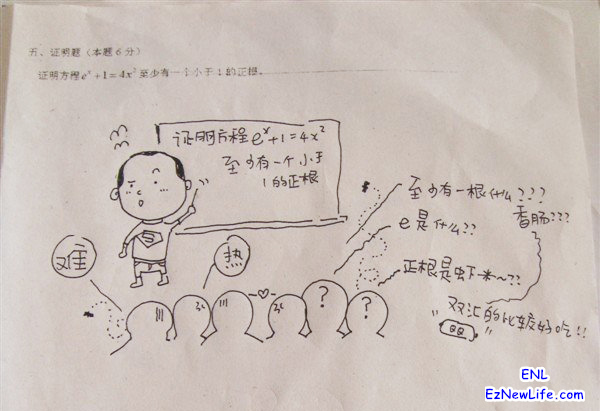 五、证明题（本题6分）
证明方程eˣ+1=4x²至少有一个小于1的正根。
证明方程eˣ+1=4x²
至少有一个小于
1的正根
难
热
至少有一根什么???
香肠???
e是什么??
正根是虾米~??
"双汇的比较好吃!!"
QQ
?
?
ENL
EzNewLife.com